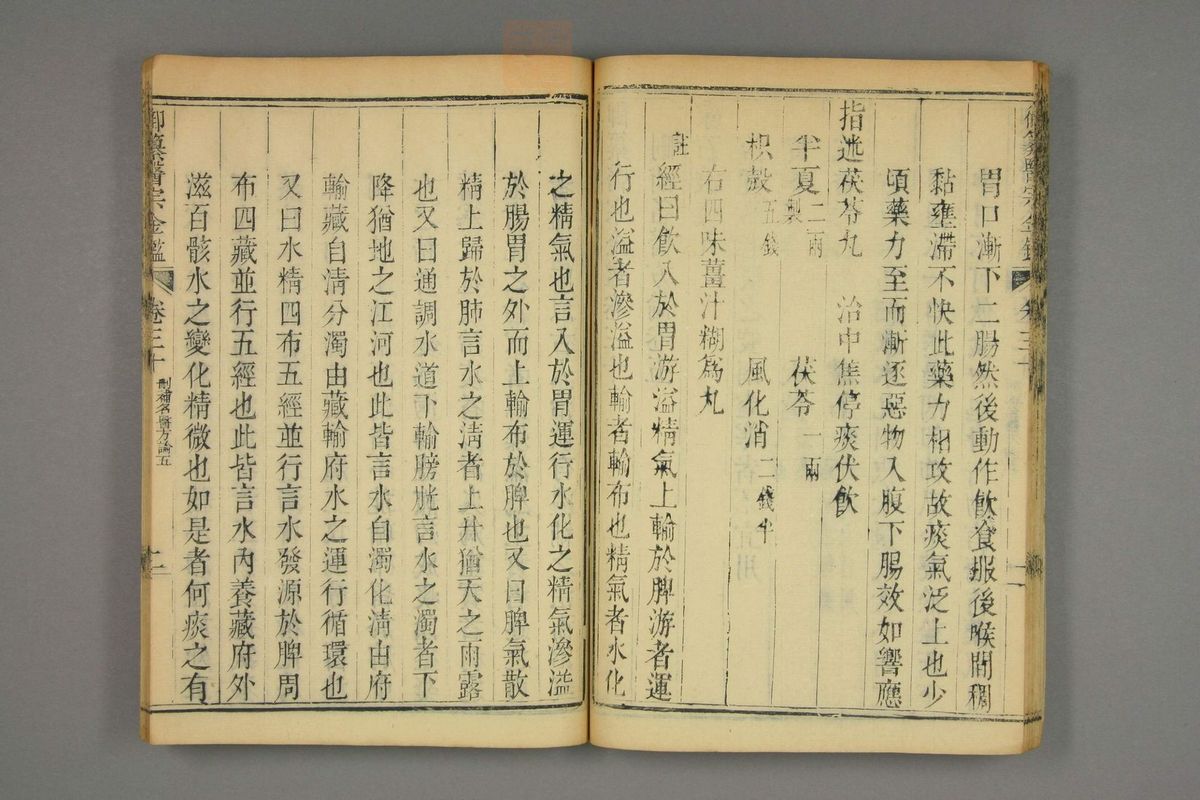 胃口漸下二腸然後動作飲食服後喉間稠
黏壅滯不快此藥力相攻故痰氣泛上也少
頃藥力至而漸逐惡物入腹下腸效如響應
指迷茯苓丸　治中焦停痰伏飲
半夏二兩製　茯苓一兩
枳殼五錢　風化消二錢半
右四味薑汁糊為丸
註經曰飲入於胃游溢精氣上輸於脾游者運
行也溢者滲溢也輸者輸布也精氣者水化
之精氣也言入於胃運行水化之精氣滲溢
於腸胃之外而上輸布於脾也又曰脾氣散
精上歸於肺言水之淸者上升猶天之雨露
也又曰通調水道下輸膀胱言水之濁者下
降猶地之江河也此皆言水自濁化淸由府
輸藏自淸分濁由藏輸府水之運行循環也
又曰水精四布五經並行言水發源於脾周
布四藏並行五經也此皆言水內養藏府外
滋百骸水之變化精微也如是者何痰之有
御纂醫宗金鑑　卷三十　刪補名醫方論五